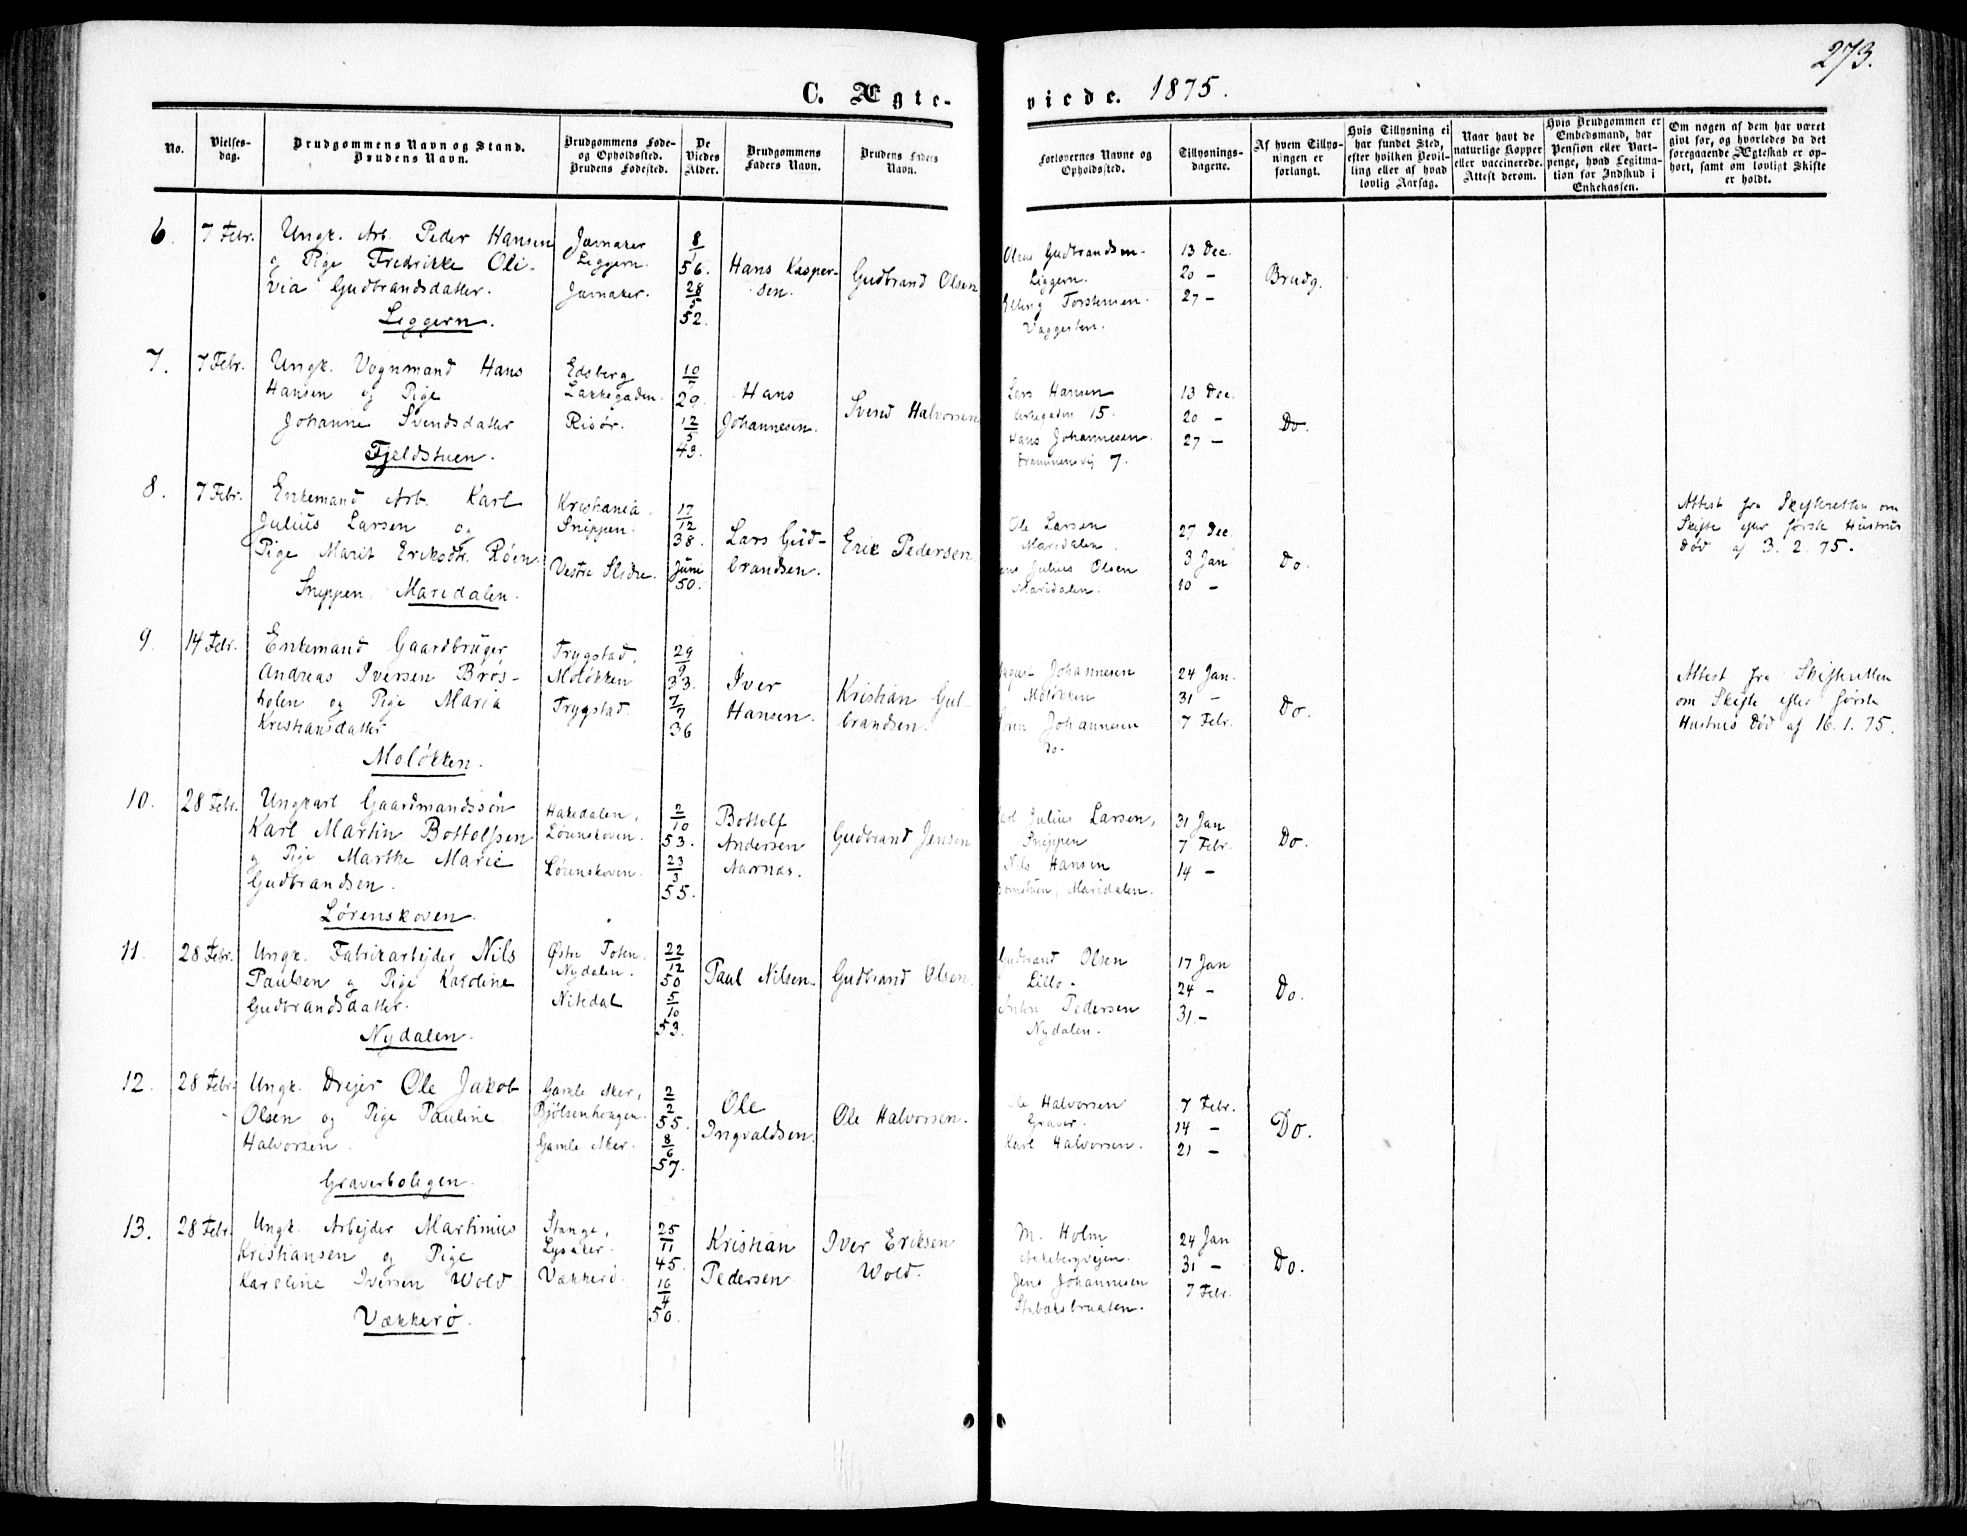 273.
C. Ægte-
viede. 1875.
No.
Vielses-
dag.
Brudgommens Navn og Stand.
Brudens Navn.
Brudgommens Føde-
og Opholdssted.
Brudens Fødested.
De
Viedes
Alder.
Brudgommens
Faders Navn.
Brudens Faders
Navn.
Forlovernes Navne og
Opholdssted.
Tillysnings-
dagene.
Af hvem Tillys-
ningen er
forlangt.
Hvis Tillysning ei
har fundet Sted,
efter hvilken Bevil-
ling eller af hvad
lovlig Aarsag.
Naar havt de
naturlige Kopper
eller vaccinerede.
Attest derom.
Hvis Brudgommen er
Embedsmand, har
Pension eller Vart-
penge, hvad Legitima-
tion for Indskud i
Enkekassen.
Om nogen af dem har været
givt før, og hvorledes da det
foregaaende Ægteskab er op-
hørt, samt om lovligt Skifte
er holdt.
6. 7 Febr.
Ungk. Arb. Peder Hansen
og Pige Fredrikke Oli-
via Gudbrandsdatter.
Liggern.
Jævnaker
Liggern.
Jævnaker.
8
1
56.
28
5
52.
Hans Kasper-
sen.
Gudbrand Olsen
Olaus Gudbrandsen
Liggern.
Elling Torstensen.
Vaggesten.
13 Dec.
20 -
27 -
Brudg.
7. 7 Febr.
Ungk. Vognmand Hans
Hansen og Pige
Johanne Svendsdatter
Fjeldstuen.
Edsberg
Lakkegaden.
Risør.
10
7
20.
12
5
43.
Hans
Johannesen.
Svend Halvorsen
Lars Hansen
15.
Hans Johannesen.
Drammensvej 7.
13 Dec.
20 -
27 -
Do.
8. 7 Febr.
Enkemand Arb. Karl
Julius Larsen og
Pige Marit Eriksdtr. Røen
Snippen, Maridalen.
Kristiania.
Snippen.
Vestre Slidre.
17
12
38.
Juni
50.
Lars Gud-
brandsen.
Erik Pedersen
Ole Larsen
Maridalen.
Julius Olsen
Maridalen.
27 Dec.
3 Jan
10 -
Do.
Attest fra Skifteretten om
Skifte efter første Hustrus
død af 3.2.75.
9. 14 Febr.
Enkemand Gaardbruger
Andreas Iversen Brøs-
holen og Pige Maria
Kristiansdatter
Moløkken.
Trygstad,
Moløkken
Trygstad
29
9
33.
7
7
36
Iver
Hansen.
Kristian Gul-
brandsen.
Johannesen
Moløkken
Johannesen
Do.
24 Jan.
31 -
7 Febr.
Do.
Attest fra Skifteretten
om Skifte efter første
Hustrus død af 16.1.75.
10. 28 Febr.
Ungkarl Gaardmandssøn
Karl Martin Bottolfsen
og Pige Marthe Marie
Gudbrandsen.
Lørenskoven.
Hakedalen,
Lørenskoven.
Lørenskoven.
2
10
53.
23
3
55.
Bottolf
Andersen
Aarnæs.
Gudbrand Jensen
Karl Julius Larsen,
Snippen
Nils Hansen
Maridalen.
31 Jan
7 Febr.
14 -
Do.
11. 28 Febr.
Ungk. Fabrikarbejder Nils
Paulsen og Pige Karoline
Gudbrandsdatter.
Nydalen.
Østre Toten.
Nydalen.
Nitedal
22
12
50
5
10
53.
Paul Nilsen.
Gudbrand Olsen.
Gudbrand Olsen
Lillo.
Anton Pedersen
Nydalen.
17 Jan
24 -
31 -
Do.
12. 28 Febr.
Ungk. Drejer Ole Jakob
Olsen og Pige Pauline
Halvorsen.
Graverboligen.
Gamle Aker,
Bjølsenhaugen.
Gamle Aker.
2
2
55.
8
6
57.
Ole
Ingvaldsen.
Ole Halvorsen.
Ole Halvorsen
Graver.
Karl Halvorsen.
7 Febr.
14 -
21 -
Do.
13. 28 Febr.
Ungk. Arbejder Martinius
Kristiansen og Pige
Karoline Iversen Wold
Vækkerø.
Stange,
Lysaker.
Vækkerø.
25
11
45.
16
4
50.
Kristian
Pedersen
Iver Eriksen
Wold.
M. Holm
Akebergvejen.
Jens Johannesen
Stabæksbraaten.
24 Jan
31 -
7 Febr.
Do.